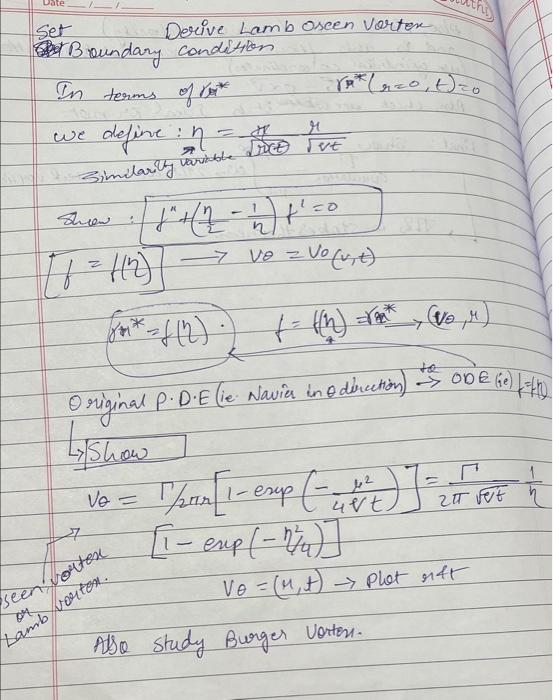 Date
Set Derive Lamb Oseen Vortex
Boundary condition
In terms of Γ* Γ*(r=0, t)=0
we define : η = r/√νt
Similarity variable
Show : f'' + (η/2 - 1/η) f' = 0
[f = f(η)] → vθ = vθ(r,t)
Γ* = f(η) . f = f(η) = Γ* → (vθ, r)
Original P.D.E (ie Navier in θ direction) to → ODE (ie) f=f(η)
↳ Show
vθ = Γ/2πr [1 - exp(-r²/4νt)] = Γ/2π√νt 1/η
[1 - exp(-η²/4)]
Oseen vortex
or
Lamb vortex.
vθ = (r, t) → Plot r & t
Also study Burger Vortex.